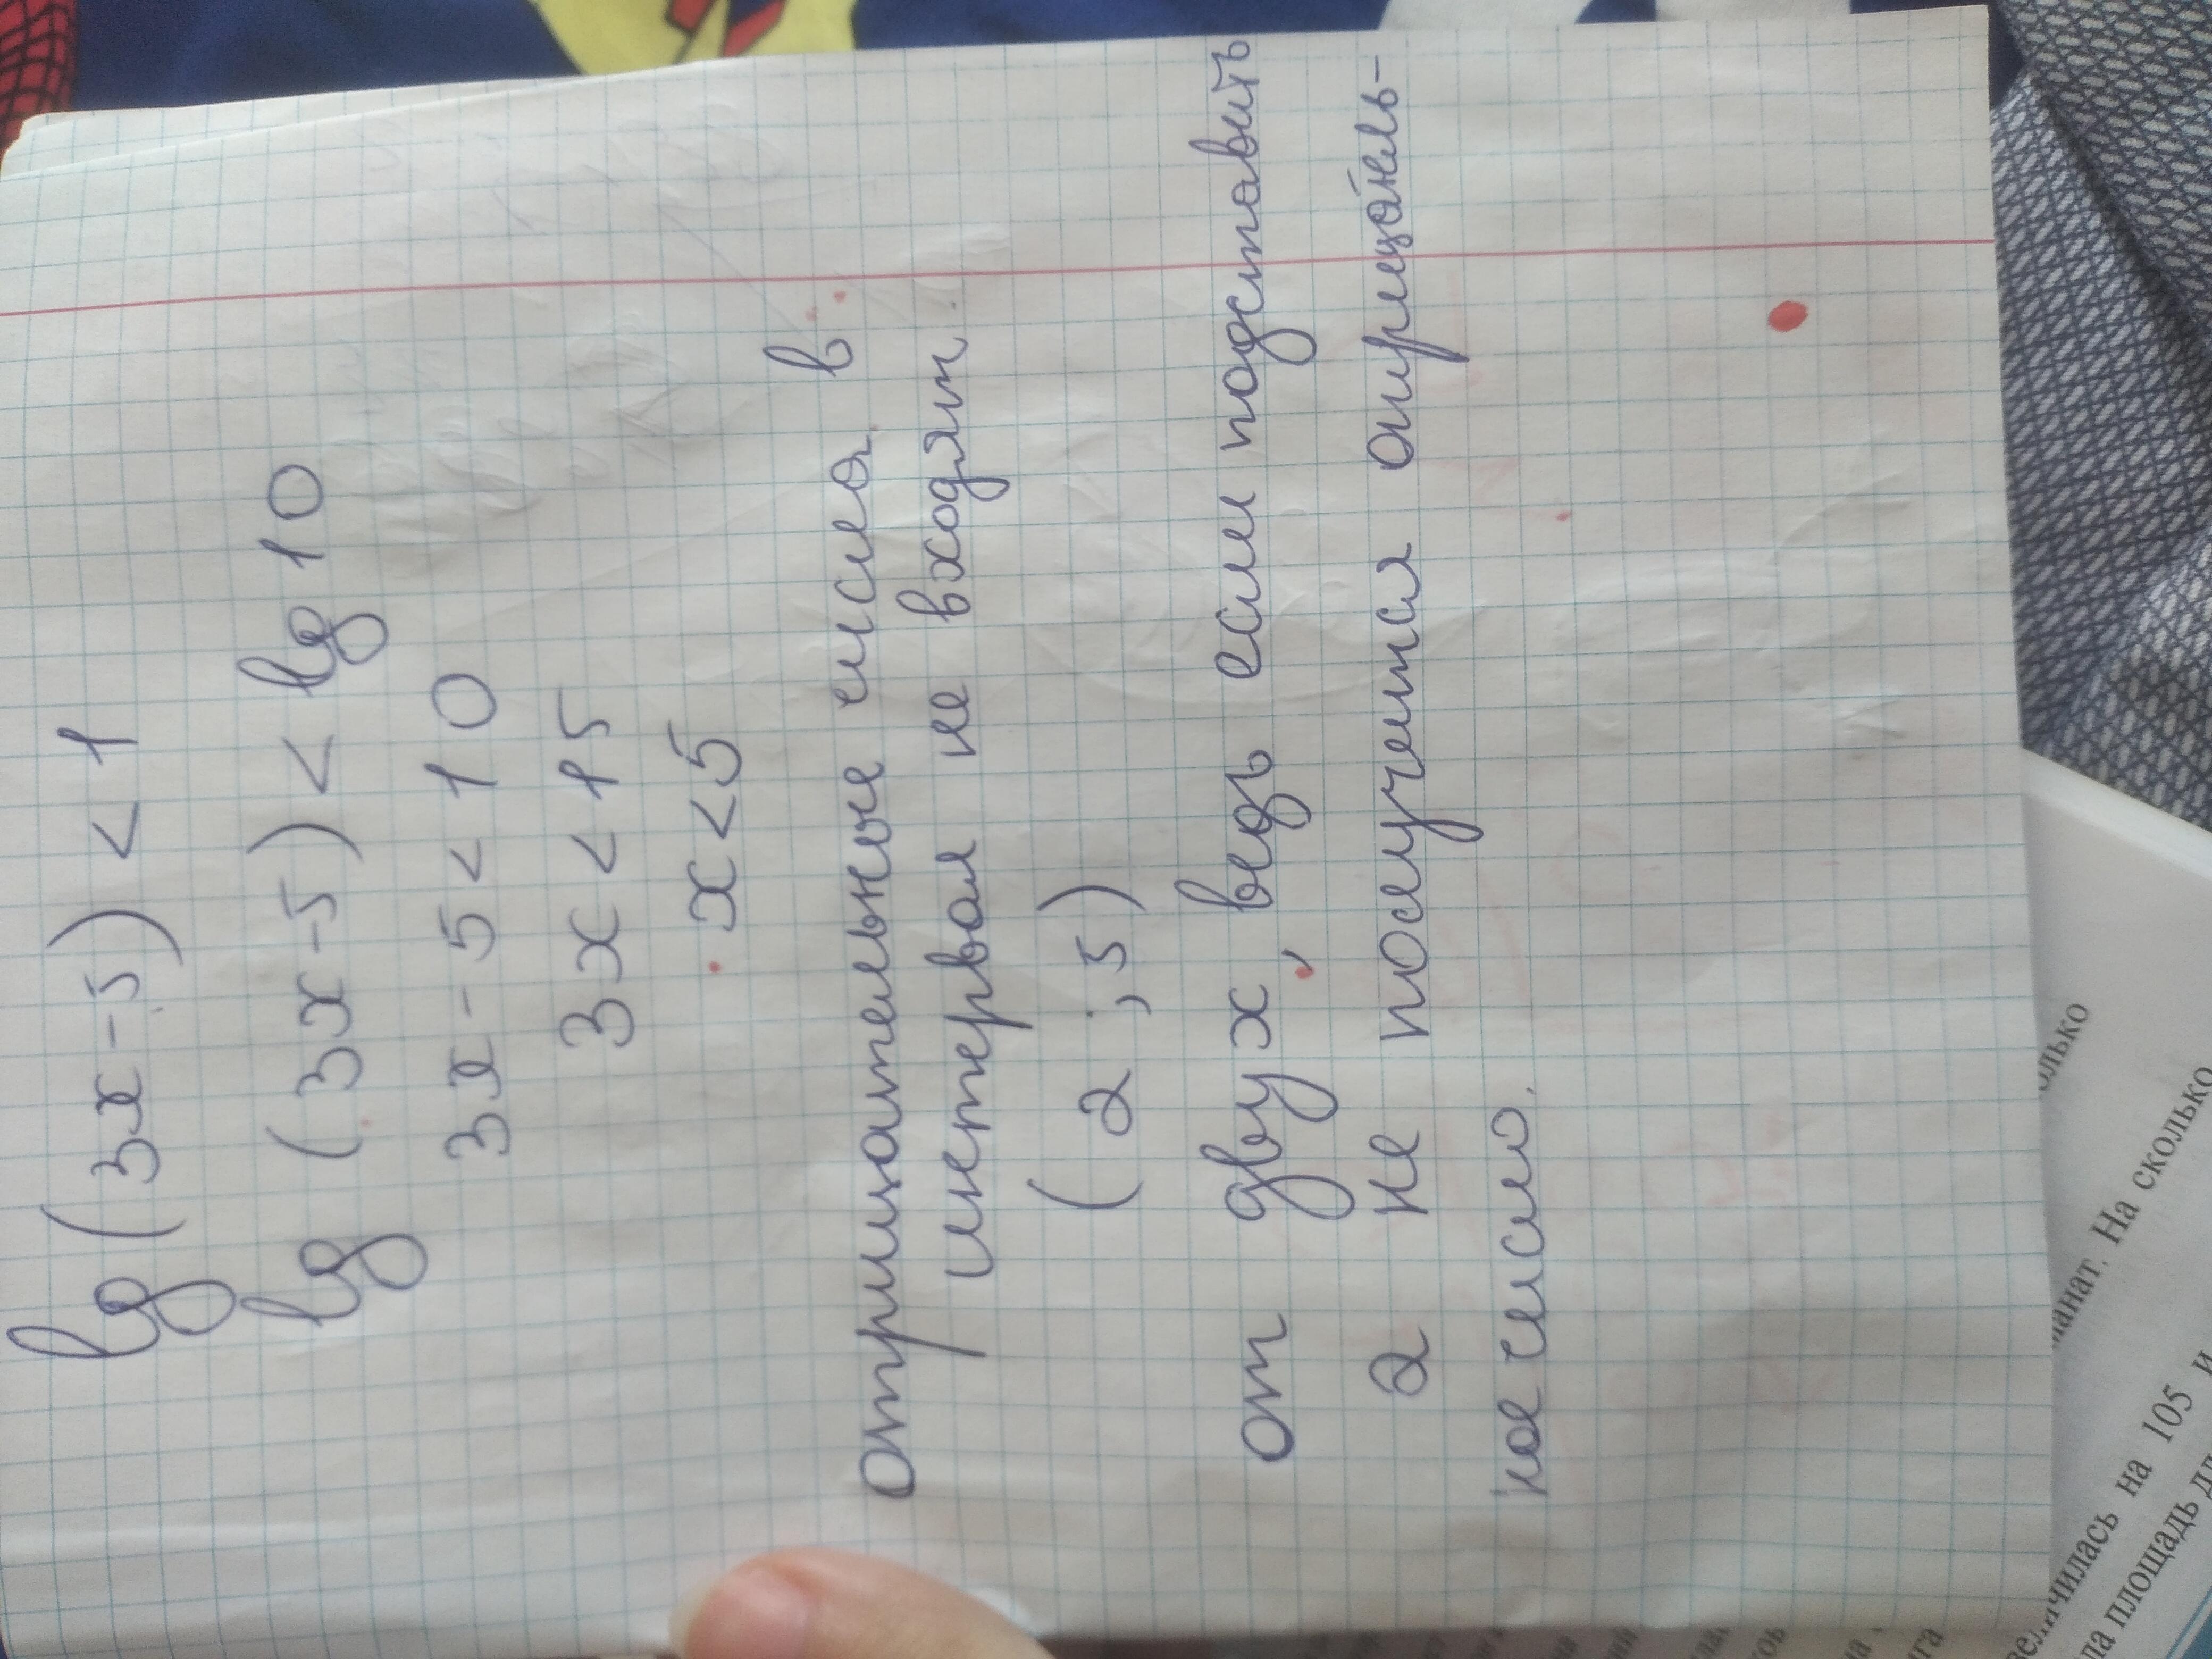 lg(3x-5)<1
lg(3x-5)<lg10
3x-5<10
3x<15
x<5
Отрицательные числа в
интервал не входят.
(2;5)
от двух, ведь если подставить
2 не получится отрицатель-
ное число.
олько
манат. На сколько
чилась на 105 и
ла площадь дл